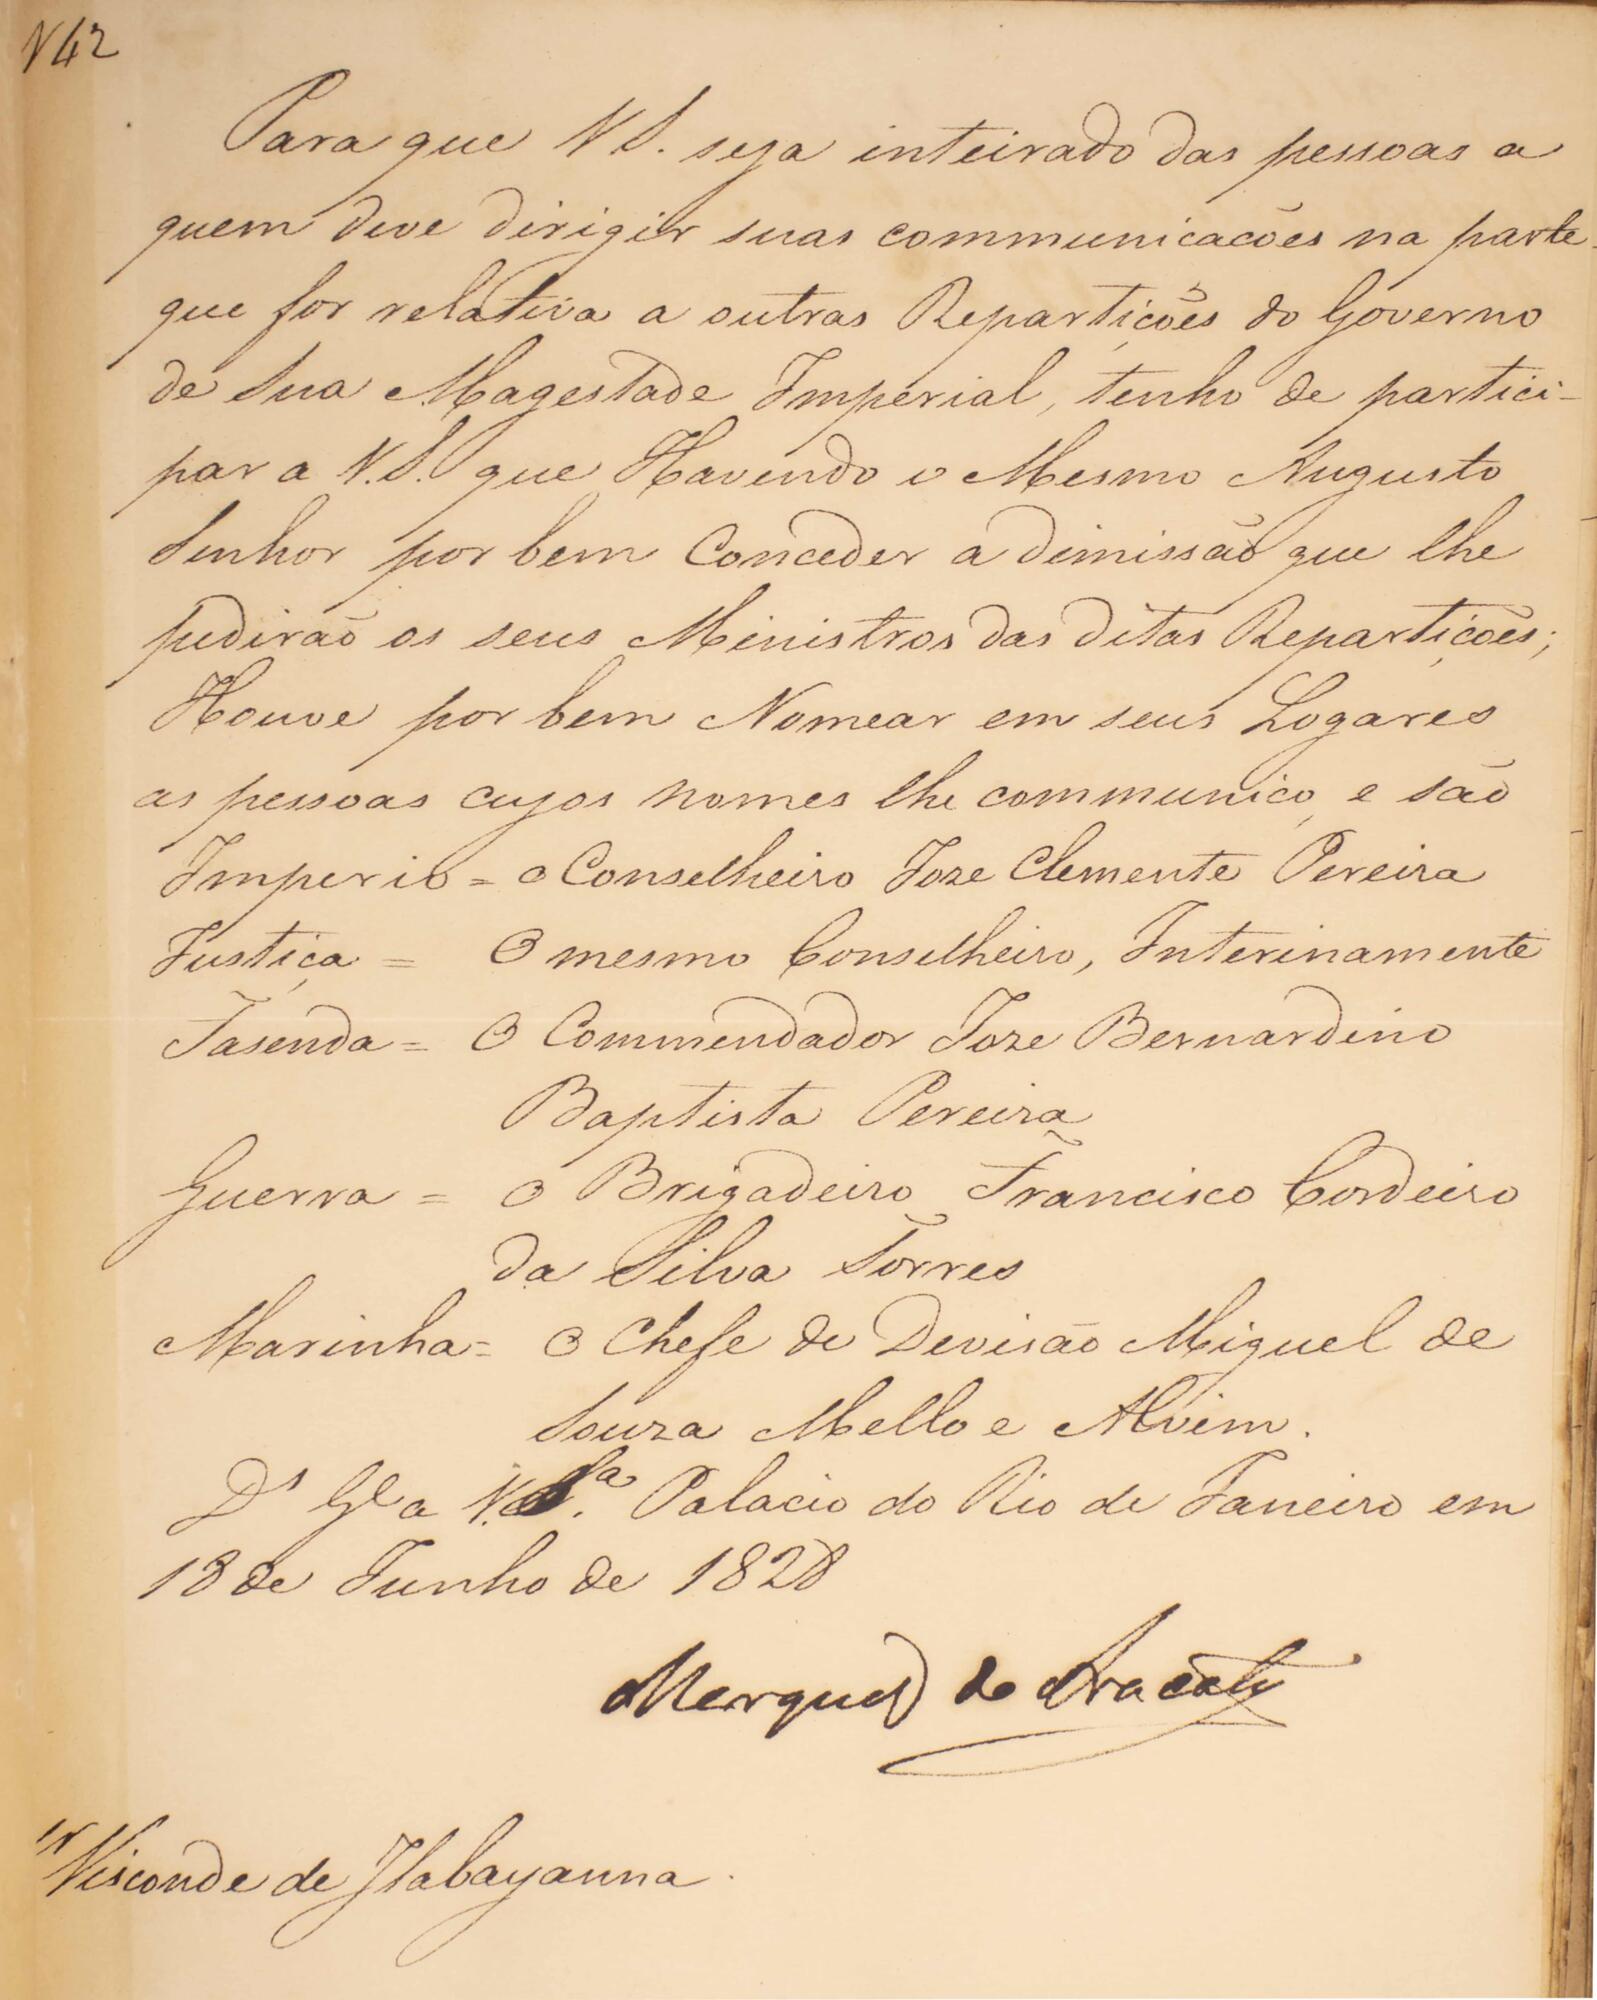 N 42
Para que V S. seja inteirado das pessoas a
quem deve dirigir suas communicacões na parte
que for relativa a outras Repartições do Governo
de Sua Magestade Imperial, tenho de partici-
par a V.S. que Havendo o Mesmo Augusto
Senhor por bem Conceder a dimissão que lhe
pedirão os seus Ministros das ditas Repartições;
Houve por bem Nomear em seus Logares
as pessoas cujos nomes lhe communico, e são
Imperio = o Conselheiro Joze Clemente Pereira
Justiça = O mesmo Conselheiro, Interinamente
Fasenda = O Commendador Joze Bernardino
Baptista Pereira
Guerra = O Brigadeiro Francisco Cordeiro
da Silva Torres
Marinha = O Chefe de Devisão Miguel de
Souza Mello e Alvim.
Ds Ge a V.Sa. Palacio do Rio de Janeiro em
18 de Junho de 1828
Marquez de Aracaty
Visconde de Itabayanna.